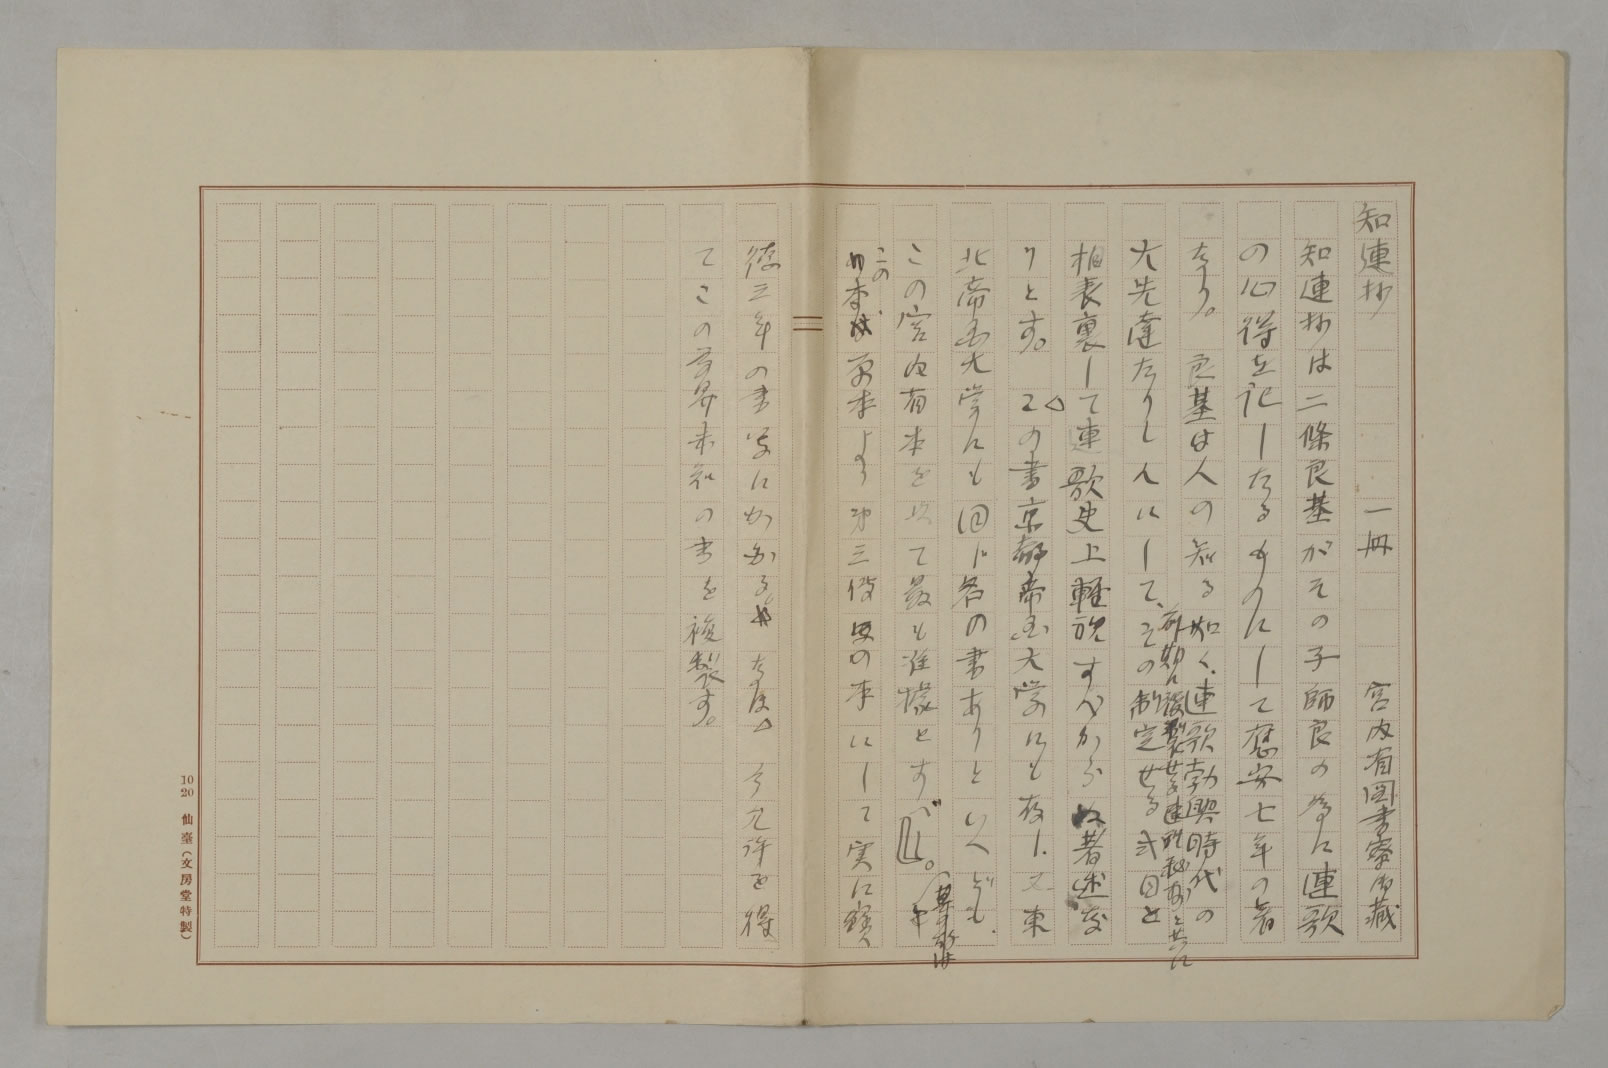 知連抄　一冊　宮内省図書寮御蔵
知連抄は二條良基がその子師良の為に連歌
の心得を記したるものにして應安七年の著
なり。良基は人の知る如く、連歌勃興時代の
大先達たりし人にして、その制定せる式目と
前期に複製せる連理秘抄と共に
相表裏して連歌史上軽視すべからぬ著述
りとす。この書京都帝国大学にも存し、又東
北帝国大学にも同じ名の書ありといへども、
この宮内省本を以て最も准據とすべし。
この
本は原本より第三伝の本にして実に
徳三年の書写にかかる。なほ 今允許を得
てこの学界未知の書を複製す。
10
20
仙臺(文房堂特製)